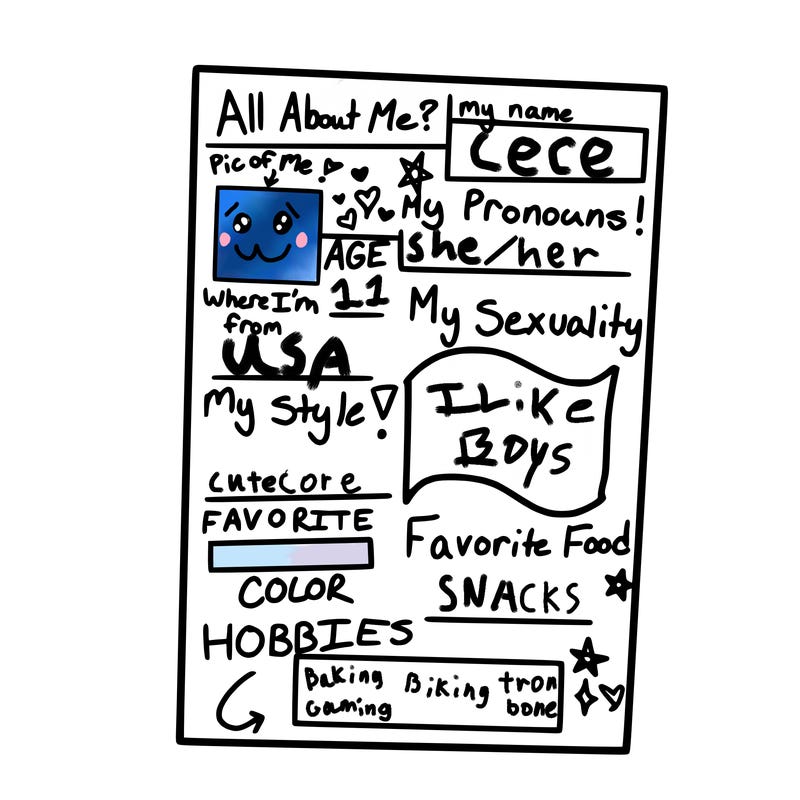 All About Me?
my name
cece
Pic of Me!
My Pronouns!
she/her
AGE
11
Where I'm
from
USA
My Sexuality
I Like
Boys
My Style!
cutecore
FAVORITE
COLOR
Favorite Food
SNACKS
HOBBIES
Baking Biking trombone
Gaming